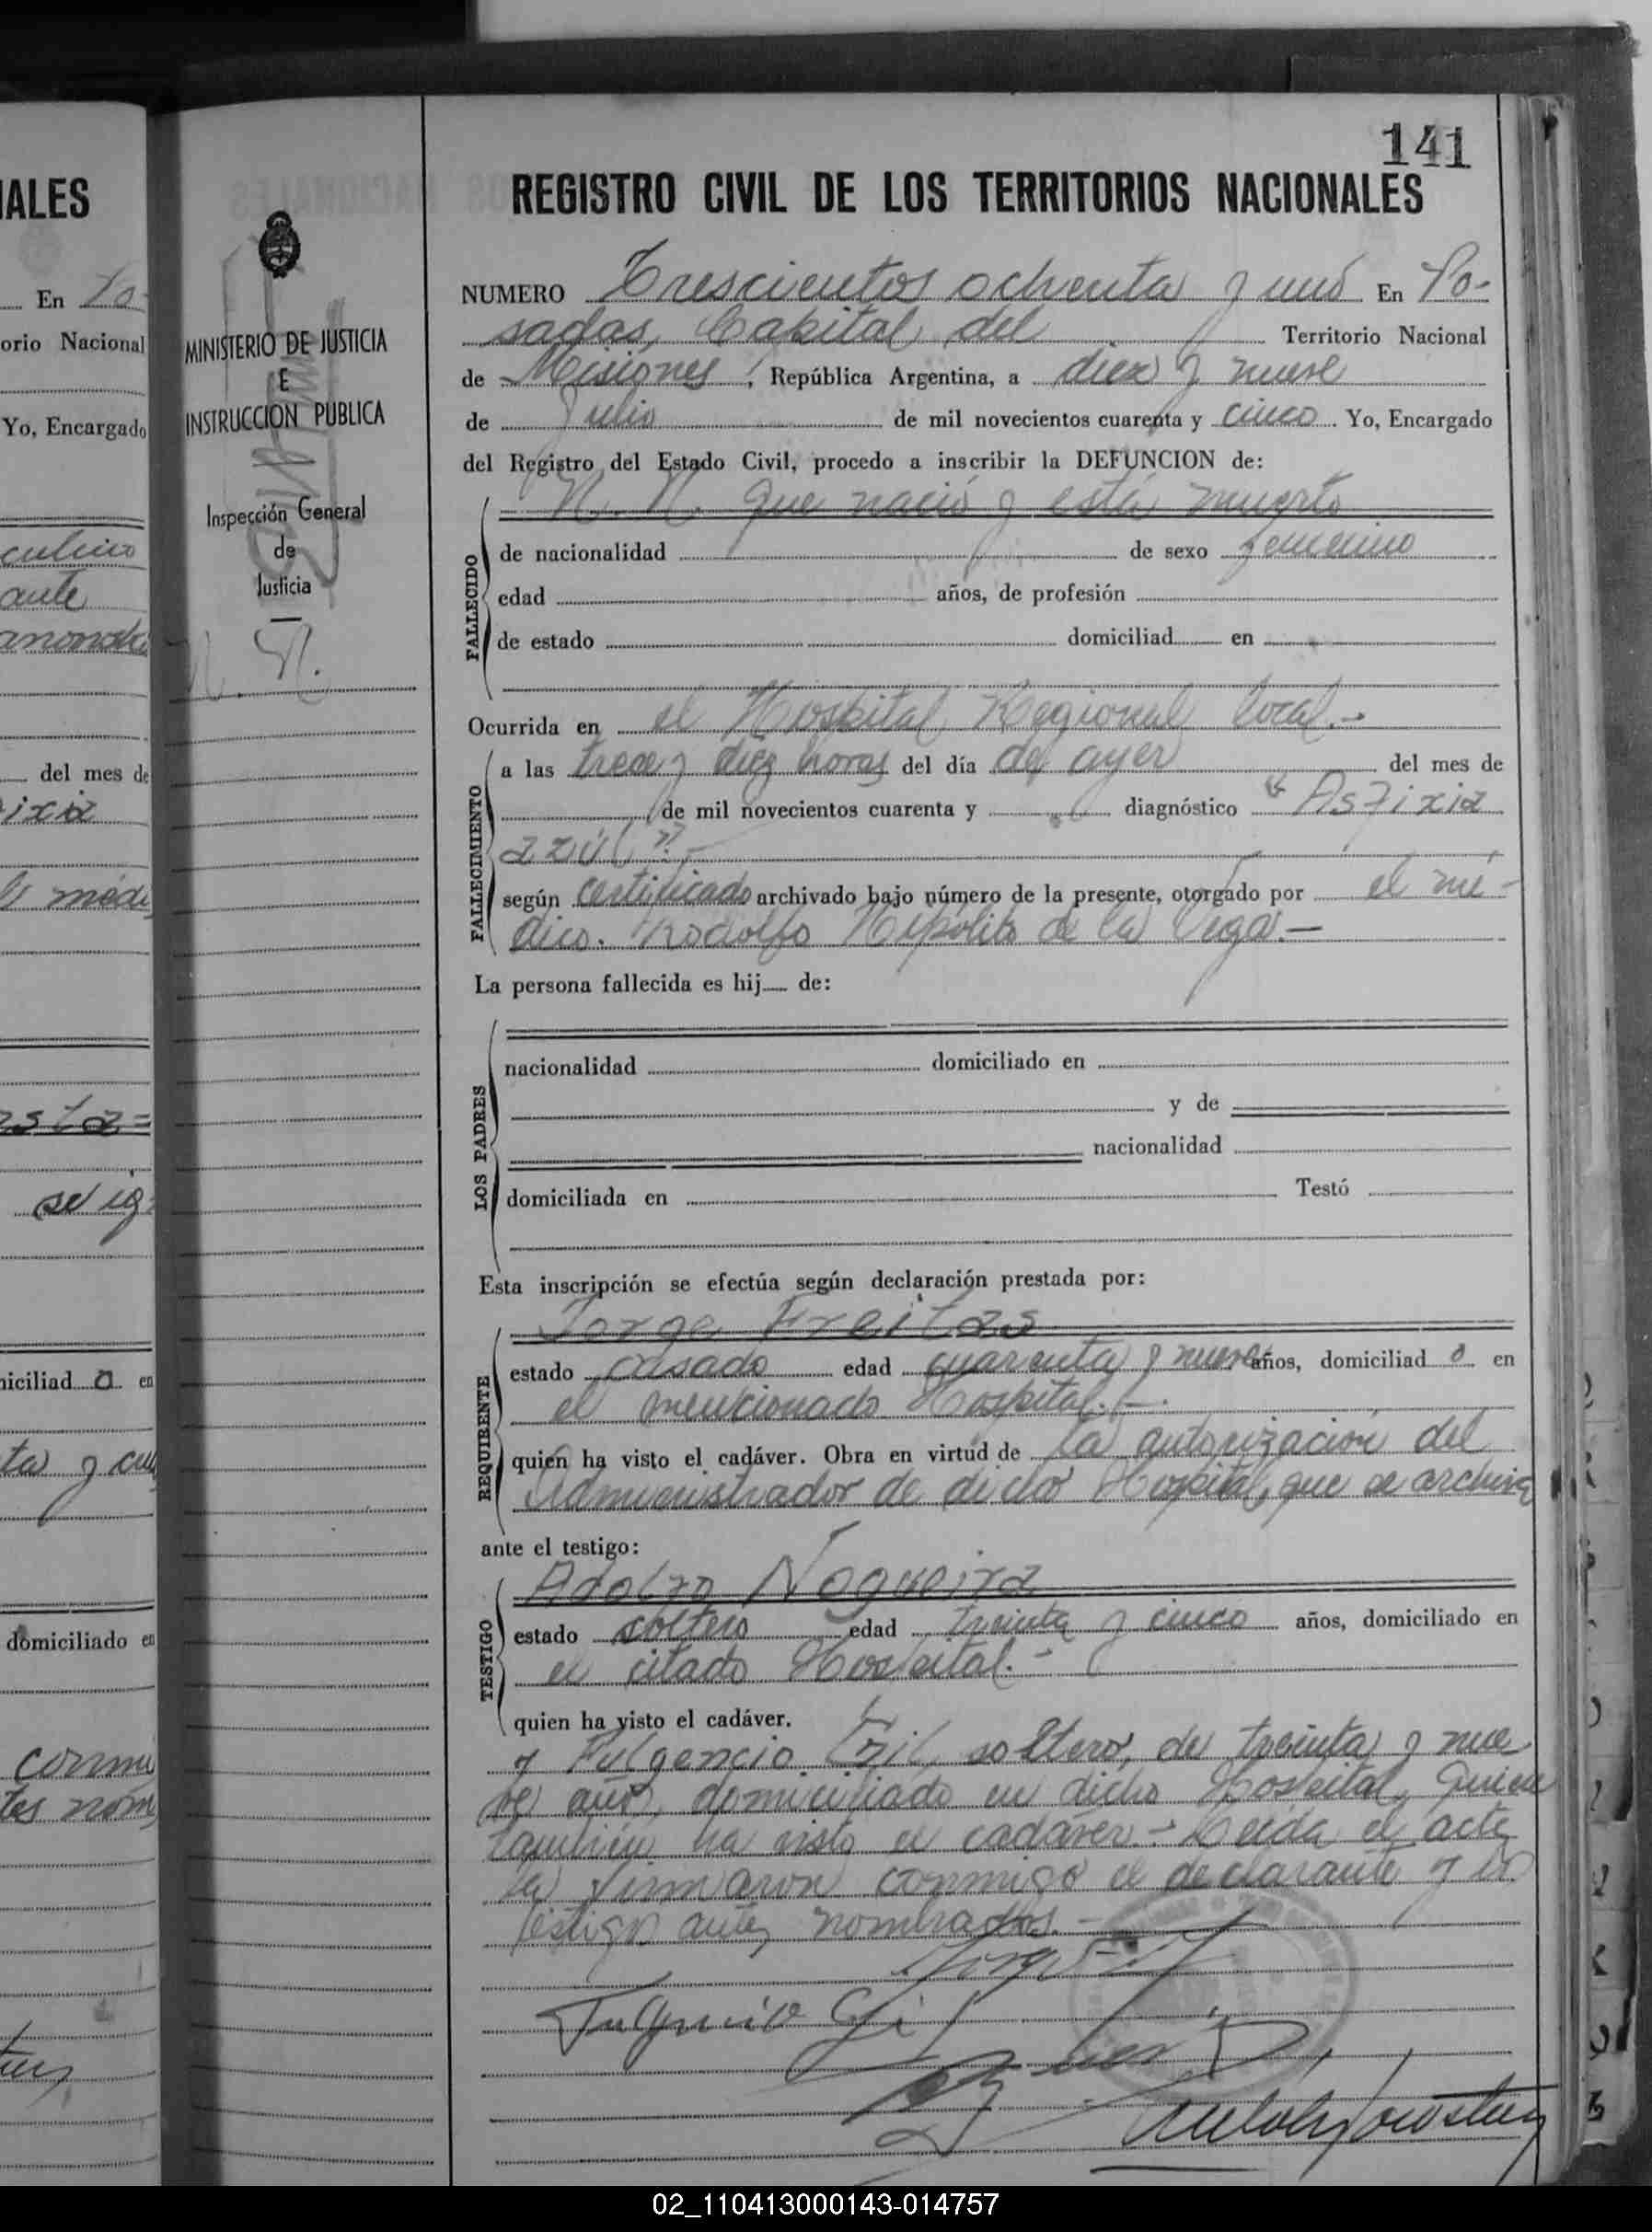 141
REGISTRO CIVIL DE LOS TERRITORIOS NACIONALES
NUMERO Trescientos ochenta y uno En Po-
sadas, Capital del Territorio Nacional
de Misiones, República Argentina, a diez y nueve
de Julio de mil novecientos cuarenta y cinco Yo, Encargado
del Registro del Estado Civil, procedo a inscribir la DEFUNCION de:
N. N. que nació y está muerto
FALLECIDO
de nacionalidad de sexo femenino
edad años, de profesión
de estado domiciliad en
Ocurrida en el Hospital Regional local.-
FALLECIMIENTO
a las trece y diez horas del día de ayer del mes de
de mil novecientos cuarenta y diagnóstico "Asfixia
azúl".-
según certificado archivado bajo número de la presente, otorgado por el mé-
dico. Rodolfo Hipólito de la Vega.-
La persona fallecida es hij de:
LOS PADRES
nacionalidad domiciliado en
y de
nacionalidad
domiciliada en Testó
Esta inscripción se efectúa según declaración prestada por:
Jorge Freitas
REQUIRENTE
estado casado edad cuarenta y nueve años, domiciliad o en
el mencionado Hospital.-
quien ha visto el cadáver. Obra en virtud de la autorización del
Administrador de dicho Hospital, que se archiva
ante el testigo:
Adolfo Nogueira
TESTIGO
estado soltero edad treinta y cinco años, domiciliado en
el citado Hospital.-
quien ha visto el cadáver.
y Fulgencio Gil, soltero, de treinta y nue
ve años, domiciliado en dicho Hospital, quien
también ha visto el cadáver.- Leída el acta
la firmaron conmigo el declarante y los
testigos antes nombrados.-
Fulgencio Gil
MINISTERIO DE JUSTICIA
E
INSTRUCCION PUBLICA
Inspección General
de
Justicia
N. N.
IALES
En Po-
orio Nacional
Yo, Encargado
culino
ante
del mes de
ixia
se ig-
niciliad o en
domiciliado en
02_110413000143-014757